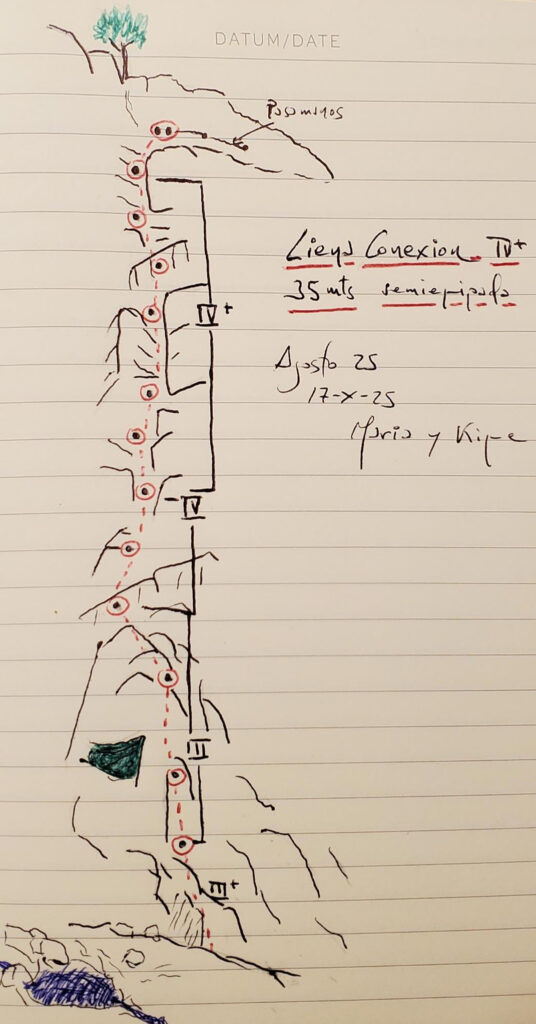 DATUM/DATE
Pasamanos
Conexion IV+
35 mts semiequipada
IV+
Agosto 25
17-X-25
Mario y Kique
IV
III
III+